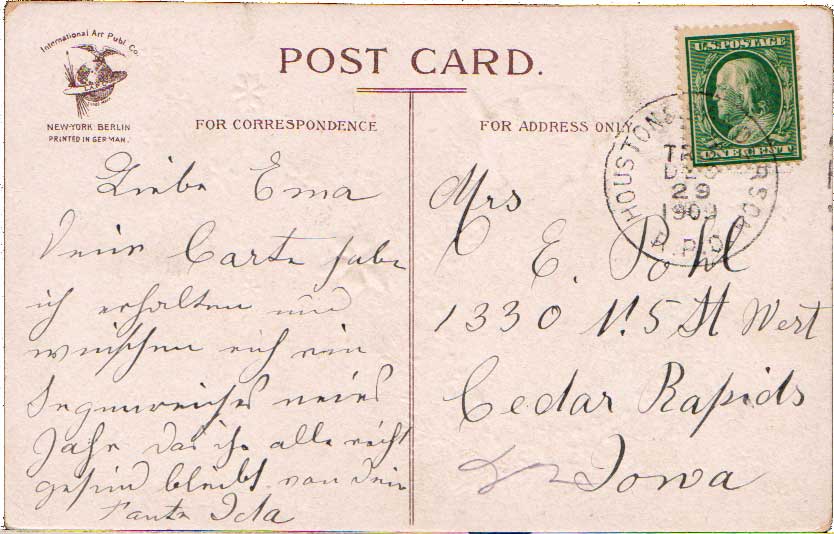 International Art Publ. Co.
NEW-YORK BERLIN
PRINTED IN GERMANY.
POST CARD.
FOR CORRESPONDENCE
FOR ADDRESS ONLY.
U.S. POSTAGE
ONE CENT
HOUSTON &
TR
DEC
29
1909
R.P.O.
Liebe Ema
Deine Carte habe
ich erhalten und
wünschen euch ein
Segenreiches neues
Jahr das ihr alle recht
gesund bleibt von dein
Tante Ida
Mrs
E. Pohl
1330 N. 5 St West
Cedar Rapids
Iowa